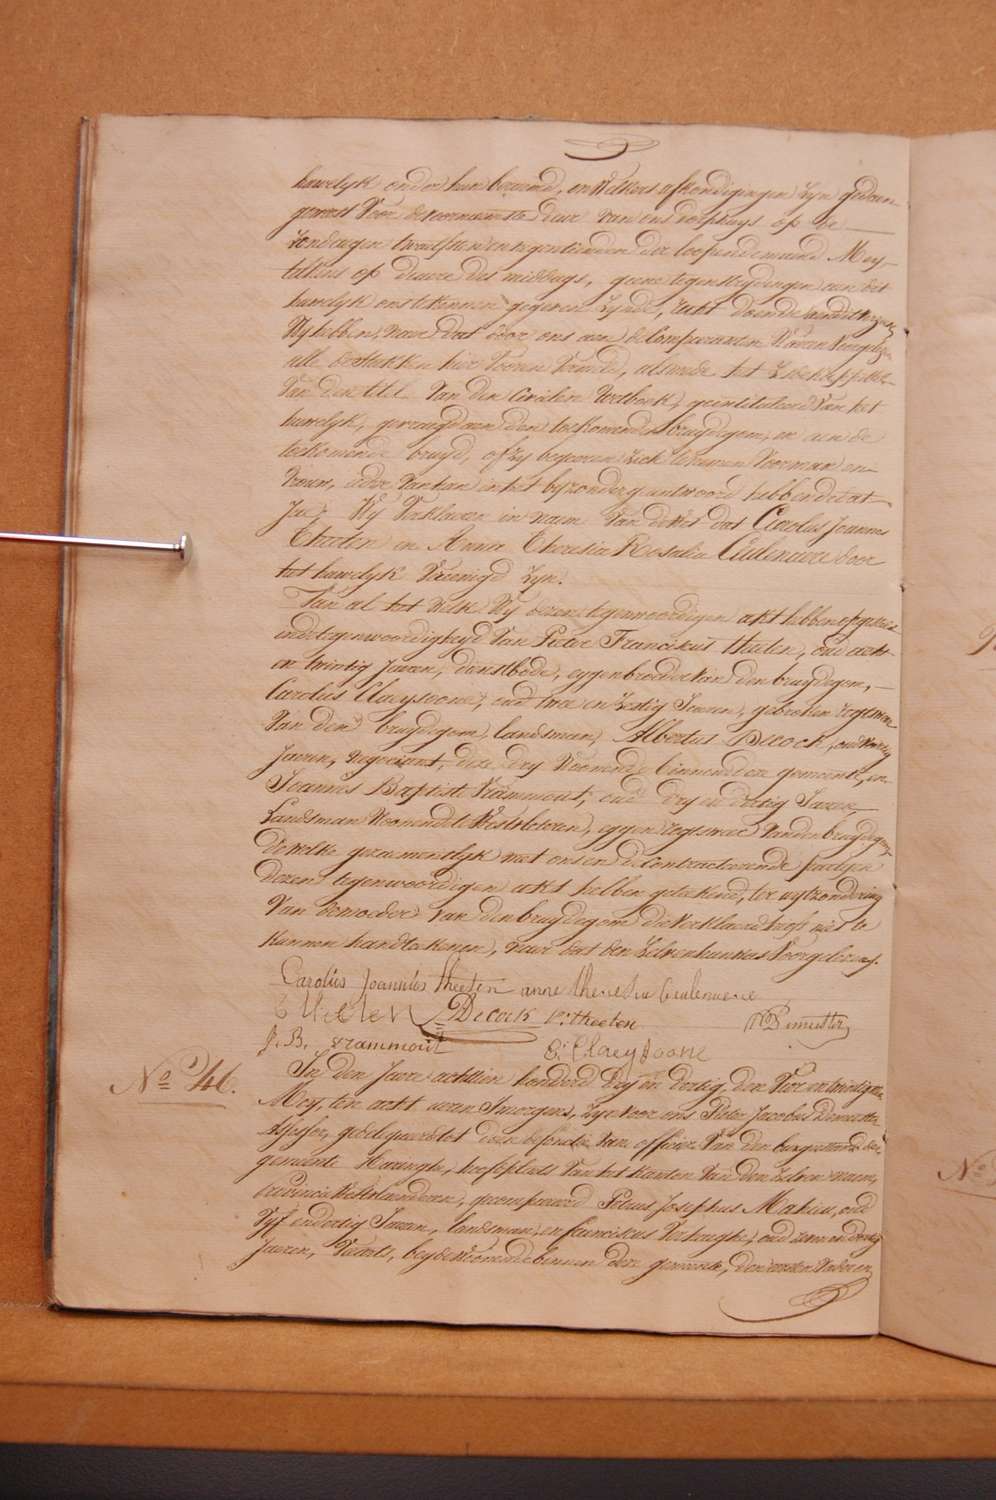 huwelyk onder hun beraemd, en Welkers afkondigingen Zyn gedaen
geweest Voor de voornaemste deure van ons dorphuys op de
Zondagen twaelfsten en negentienden der loopende maend Mey
telkens op d'eure des middags, geene tegenstrydingen aen het
huwelyk ons te kennen gegeven Zynde, recht doende
Wy hebben, naer dat door ons aen de Comparanten
alle de stukken hier Vooren Vermeld, alsmede het Zesde Kappittel
Van den titel Van den Civielen Wetboek, geintituleerd Van het
huwelyk, gevraegd aen den toekomenden bruydegom, en aen de
toekomende bruyd, of Zy begeeren Zich te neemen Voor man en
Vrouw, ider Van hun in het byzonder geantwoord hebbende dat
Ja; Wy Verklaeren in naem Van de Wet dat Carolus Joannes
Theeten en Anna Theresia Rosalia Culenaere door
het huwelyk Vereenigd Zyn.
Van al het welk Wy dezen tegenwoordigen akt hebben opgesteld
in de tegenwoordigheyd Van Pieter Franciskus Theeten, oud acht
en twintig Jaeren, dienstbode, eygen broeder Van den bruydegom,
Carolus Claeysoone, oud twee en Zestig Jaeren, gebroken
Van den bruydegom, landsman, Albertus Decock, oud Veertig
Jaeren, negociant, deze dry Woonende binnen deze gemeente, en
Joannes Baptiste Vrammout, oud dry en dertig Jaeren
Landsman Woonende te Westvleteren, eygen Van den bruydegom
dewelke gezamentlyk met ons en de Contracteerende partyen
dezen tegenwoordigen akt hebben geteekend, ter uytzondering
Van de moeder van den bruydegom die Verklaerd heeft niet te
kunnen handteekenen, naer dat den Zelven hun was Voorgelezen.
Carolus Joannus theeten anne theresia Culenaere
Theeten Decock P: theeten PDemeester
J. B. vrammout C: Claeysoone
N° 46.
In den Jaere achttien honderd Dry en dertig, den Vier en twintigsten
Mey, ten acht uren 's morgens, Zyn Voor ons Pieter Jacobus Demeester
Assessor, gedelegueerd tot de Van officier Van den burgerstand der
gemeente Haringhe, hoofdplaets Van het kanton Van den Zelven naem,
provincie Westvlaenderen, gecompareerd Petrus Josephus Mahieu, oud
Vyf en dertig Jaeren, landsman, en franciskus Verhaeghe, oud en dertig
Jaeren, beyde Woonende binnen deze gemeente, den eersten Vader en